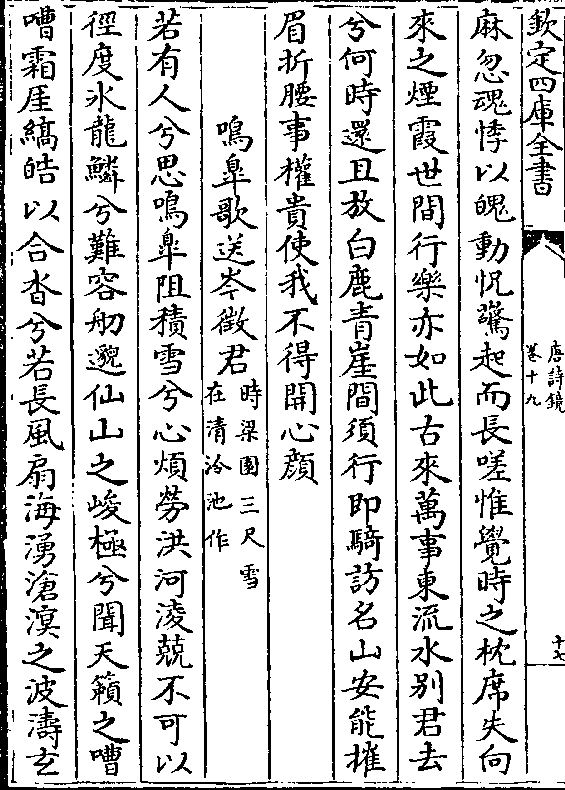 欽定四庫全書
唐詩鏡
卷十九
十七
麻忽魂悸以魄動怳驚起而長嗟惟覺時之枕席失向
來之煙霞世間行樂亦如此古來萬事東流水别君去
兮何時還且放白鹿青崖間須行即騎訪名山安能摧
眉折腰事權貴使我不得開心顔
鳴臯歌送岑徵君時梁園三尺雪
在清泠池作
若有人兮思鳴臯阻積雪兮心煩勞洪河淩兢不可以
徑度冰龍鱗兮難容舠邈仙山之峻極兮聞天籟之嘈
嘈霜厓縞皓以合沓兮若長風扇海湧滄溟之波濤玄